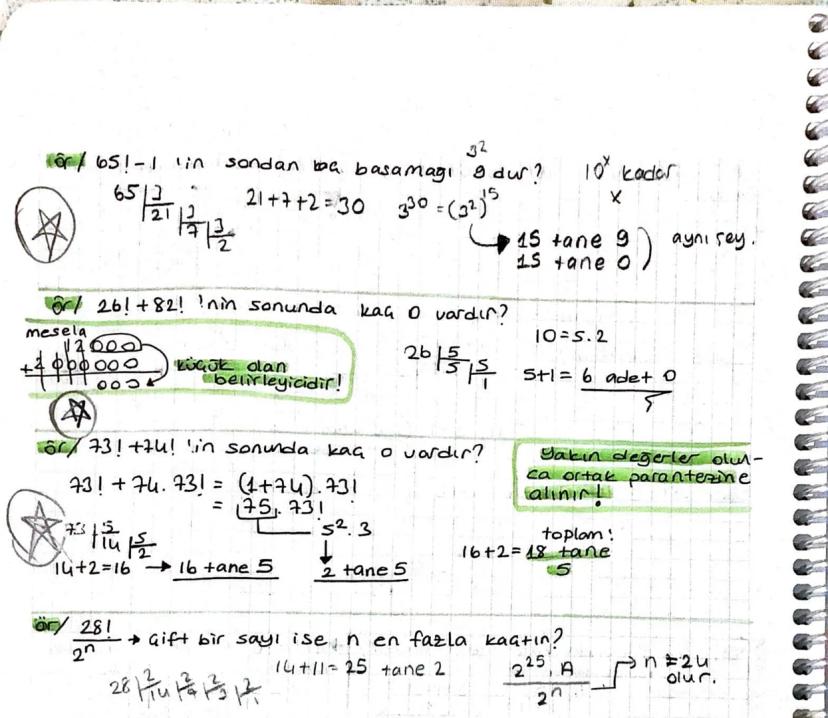 ör/ 65!-1 'in sondan kaç basamağı 9 dur? 10^x kadar
3^2
x
65 | 3
21 | 3
7 | 3
2
21+7+2=30
3^30 = (3^2)^15
15 tane 9
15 tane 0
aynı şey.
ör/ 26! + 82! 'nin sonunda kaç 0 vardır?
mesela
12000
+1000000
000
küçük olan
belirleyicidir!
26 | 5
5 | 5
1
10=5.2
5+1= 6 adet 0
ör/ 73! +74! 'in sonunda kaç 0 vardır?
73! + 74. 73! = (1+74).73!
= 75. 73!
5^2. 3
73 | 5
14 | 5
2
14+2=16 → 16 tane 5
2 tane 5
Yakın değerler olun-
ca ortak parantezine
alınır!
toplam:
16+2= 18 tane
5
ör/ 28!/2^n → çift bir sayı ise n en fazla kaçtır?
28 | 2
14 | 2
14+11= 25 tane 2
2^25. A / 2^n
n = 24
olur.